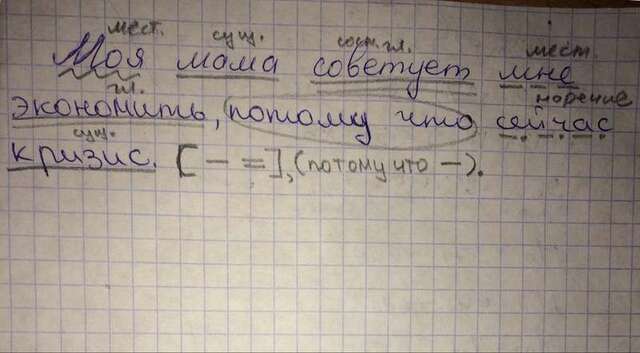 мест. сущ. сост. гл. мест.
Моя мама советует мне
гл. наречие
экономить, потому что сейчас
сущ.
кризис. [ – = ], (потому что – ).